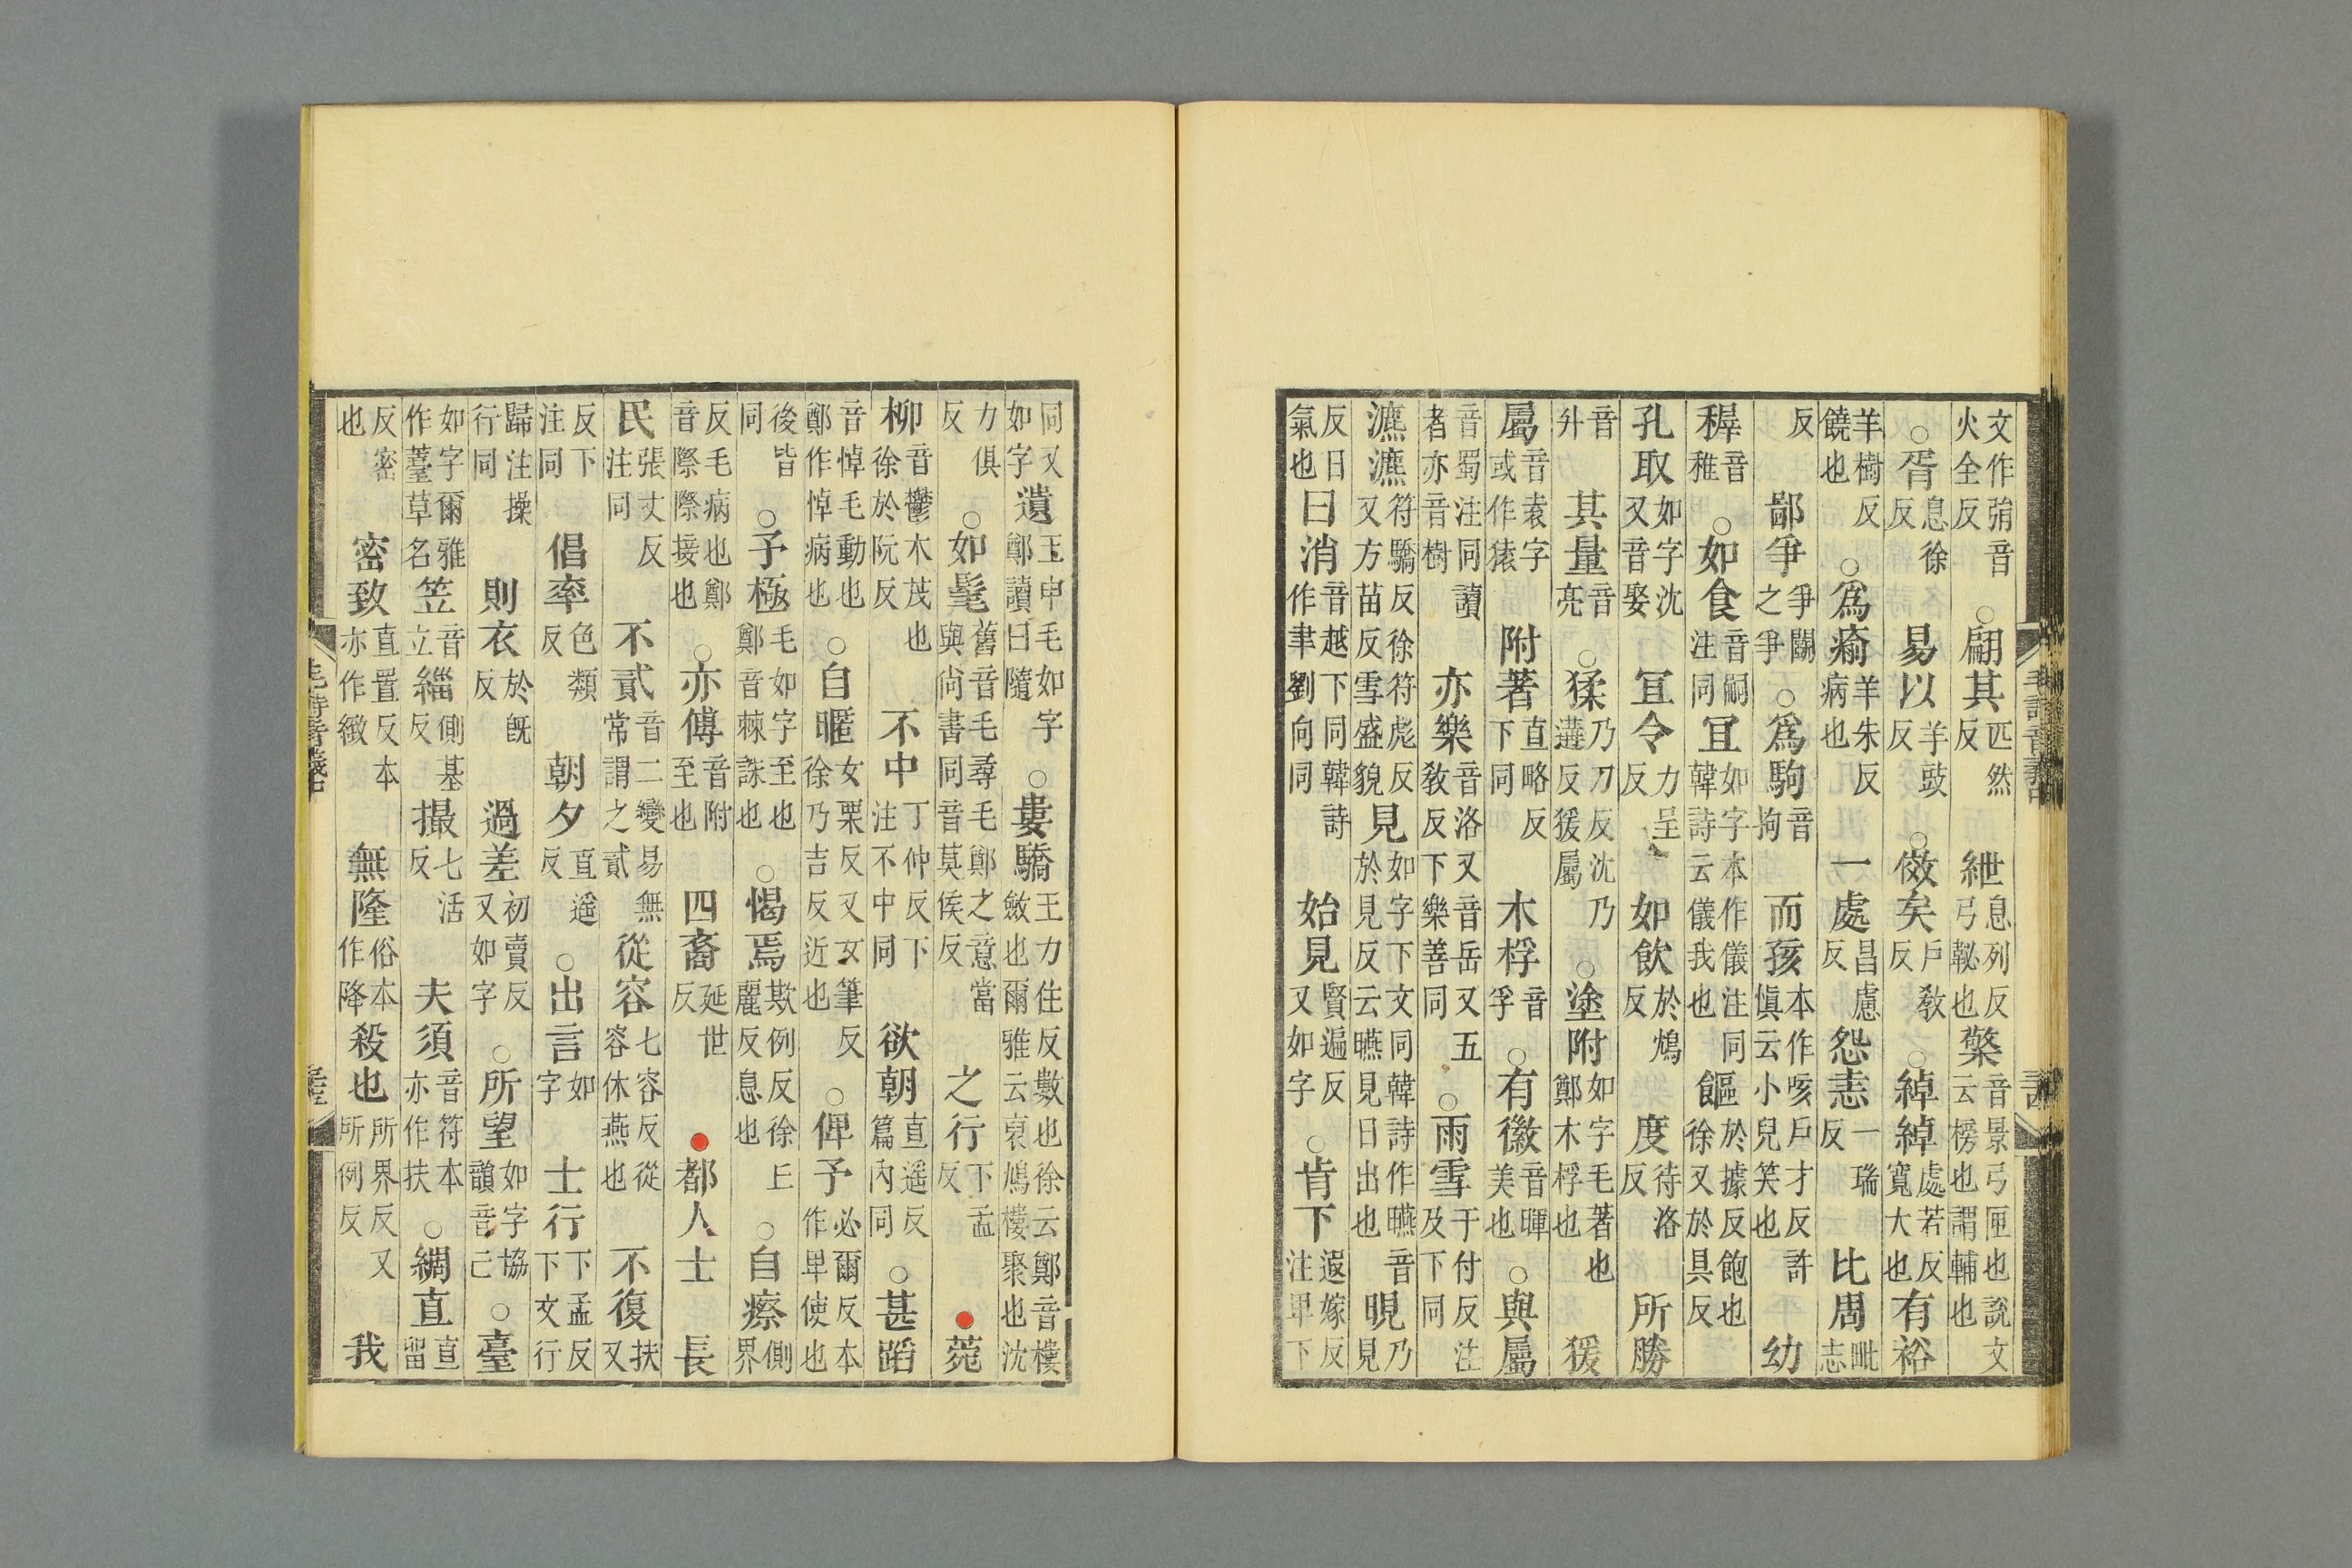 文作弲音火全反 ○翩其匹然反 紲息列反弓䪐也 檠音景弓匣也說文云榜也謂輔也
○胥息徐反 易以羊豉反 ○傚矣戶教反 ○綽綽處若反寬大也 有裕
羊樹反饒也 ○爲瘉羊朱反病也 一處昌慮反 怨恚一瑞反 比周毗志
反 鄙爭爭鬭之爭 ○爲駒音拘 而孩本作咳戶才反許愼云小兒笑也 幼
稺音稚 ○如食音嗣注同 冝如字本作儀注同韓詩云儀我也 饇於據反飽也徐又於具反
孔取如字沈又音娶 冝令力呈反 如飲於鴆反 度待洛反 所勝
音升 其量音亮 ○猱乃刀反沈乃遘反猨屬 ○塗附如字毛著也鄭木桴也 猨
屬音袁字或作猿 附著直略反下同 木桴音孚 ○有徽音暉美也 ○與屬
音蜀注同讀者亦音樹 亦樂音洛又音岳又五敎反下樂善同 ○雨雪于付反注及下同
瀌瀌符驕反徐符彪反又方苗反雪盛貌 見如字下文同韓詩作曣音於見反云曣見日出也 晛乃見
反日氣也 曰消音越下同韓詩作聿劉向同 始見賢遍反又如字 ○肯下遐嫁反注卑下
毛詩音義中
同又如字 遺王申毛如字鄭讀曰隨 ○婁驕王力住反數也徐云鄭音樓斂也爾雅云裒鳩樓聚也沈
力俱反 ○如髦舊音毛尋毛鄭之意當與尙書同音莫侯反 之行下孟反 ●菀
柳音鬱木茂也徐於阮反 不中丁仲反下注不中同 欲朝直遥反篇內同 ○甚蹈
音悼毛動也鄭作悼病也 ○自暱女栗反又女筆反徐乃吉反近也 ○俾予必爾反本作卑使也
後皆同 ○予極毛如字至也鄭音棘誅也 ○愒焉欺例反徐丘麗反息也 ○自瘵側界
反毛病也鄭音際際接也 ○亦傅音附至也 四裔延世反 ●都人士 長
民張丈反注同 不貳音二變易無常謂之貳 從容七容反從容休燕也 不復扶又
反下注同 倡率色類反 朝夕直遥反 ○出言如字 士行下孟反下文行
歸注操行同 則衣於旣反 過差初賣反又如字 ○所望如字協韻音亡 ○臺
如字爾雅作薹草名 笠音立 緇側基反 撮七活反 夫須音符本亦作扶 ○綢直直留
反密也 密致直置反本亦作緻 無隆俗本作降 殺也所界反又所例反 我
毛詩音義中